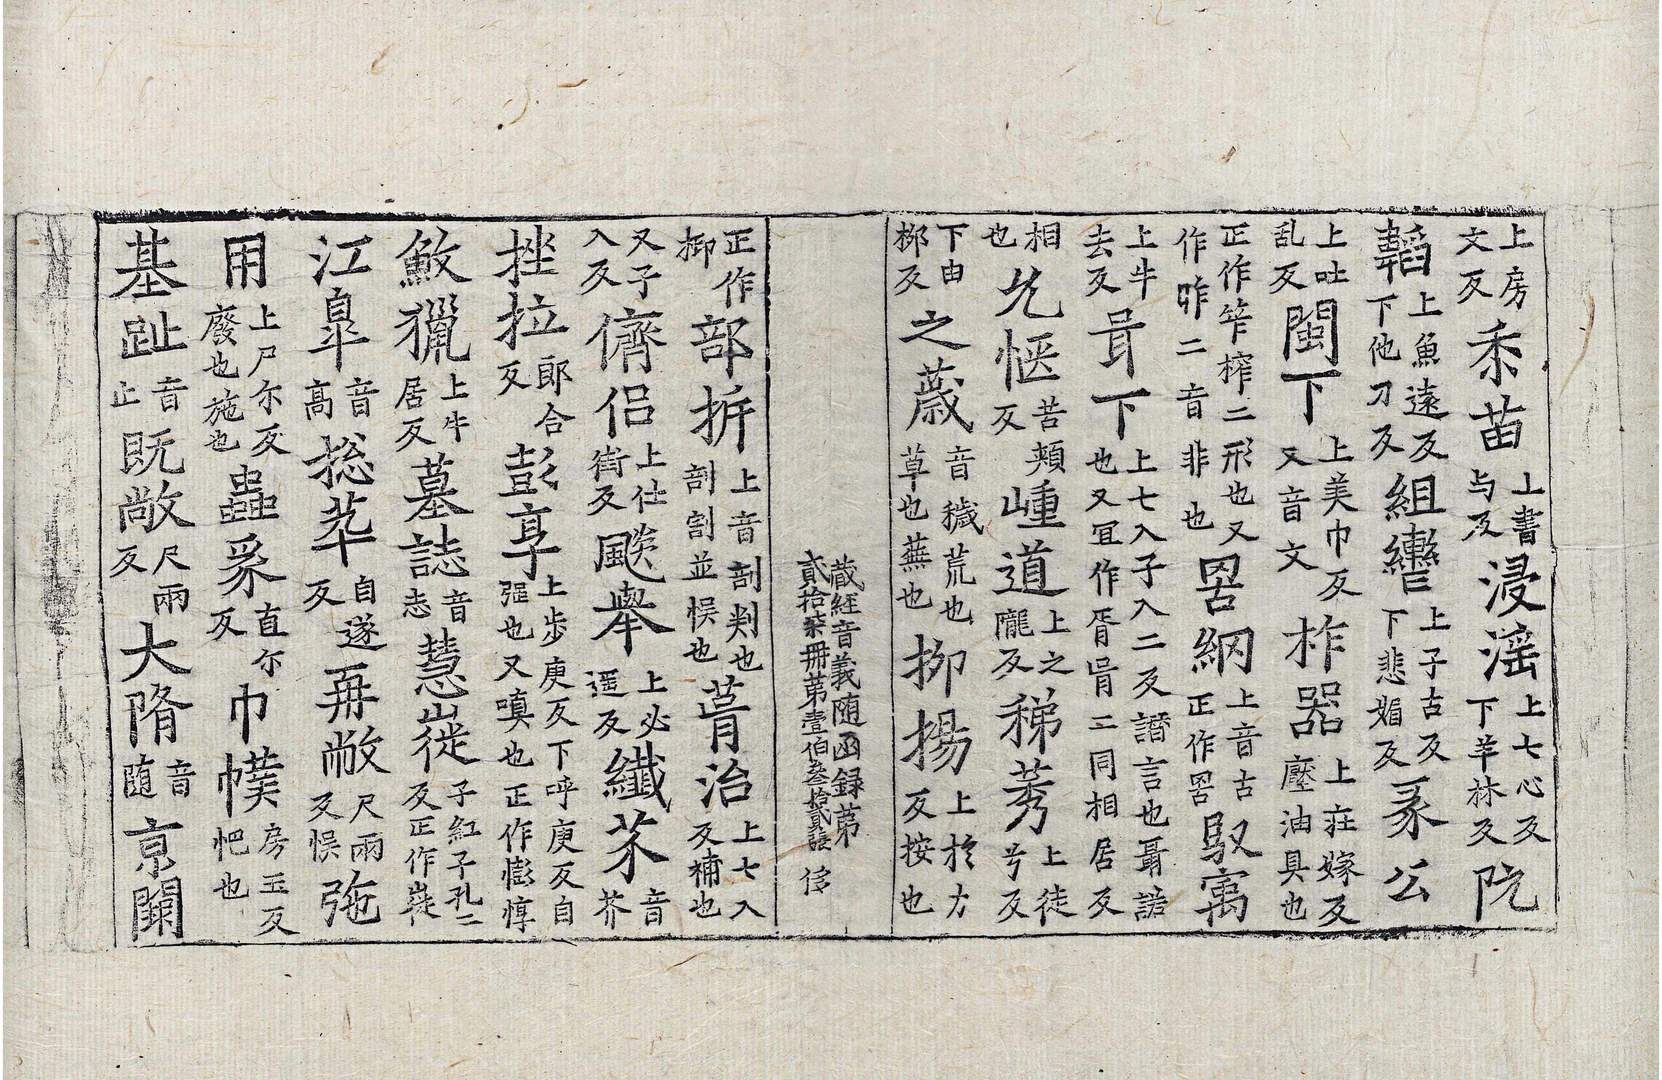 上房文反黍苗上書与反浸滛上七心反下羊林反阮
韜上魚遠反下他刀反組轡上子古反下悲媚反豖公
上吐乱反閩下上美巾反又音文柞器上莊嫁反壓油具也
正作笮榨二形也又作昨二音非也罟網上音古正作罟馭寓
上牛去反咠下上七入子入二反譖言也聶諎也又冝作胥肙二同相居反
相也先愜苦頰反崜道上之隴反稊莠上徒兮反
下由栁反之薉音穢荒也草也蕪也抑揚上於力反按也
藏經音義随函録第貳拾柒冊第壹伯叁拾貳張 信
正作栁部㭊上音剖判也剖割並悮也葺治上七入反補也
又子入反儕侣上仕街反飈舉上必遥反纖芥音芥
挫拉郎合反彭享上步庚反下呼庚反自强也又嗔也正作膨悙
敏獵上牛居反墓誌音志慧嵸子紅子孔二反正作嵸
江臯音高捴萃自遂反再敞尺兩反悮弛
用上尸尔反廢也施也蟲豸直尔反巾幞房玉反帊也
基趾音止既敞尺兩反大隋音随京闕